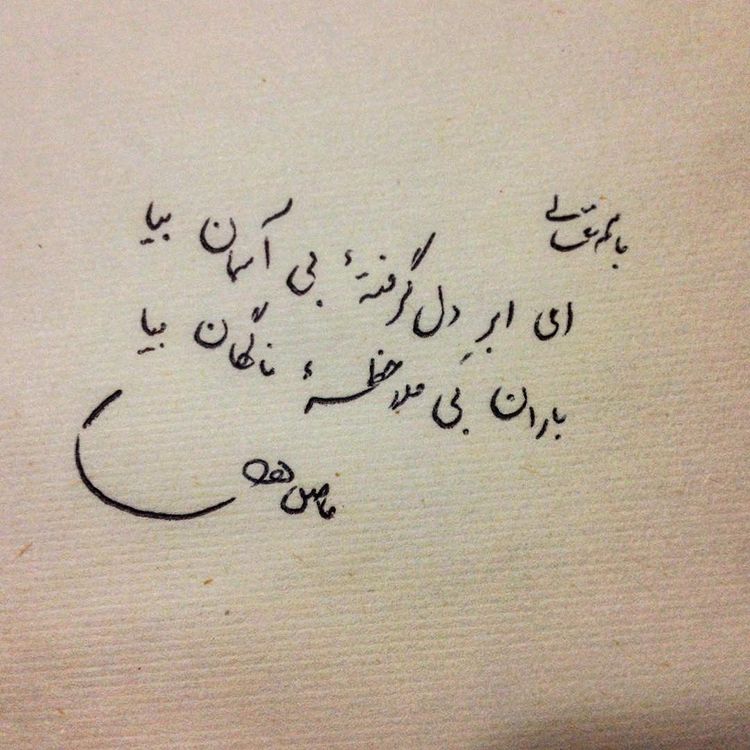 باسمه تعالی
ای ابرِ دل گرفتهٔ بی آسمان بیا
باران بی ملاحظهٔ ناگهان بیا